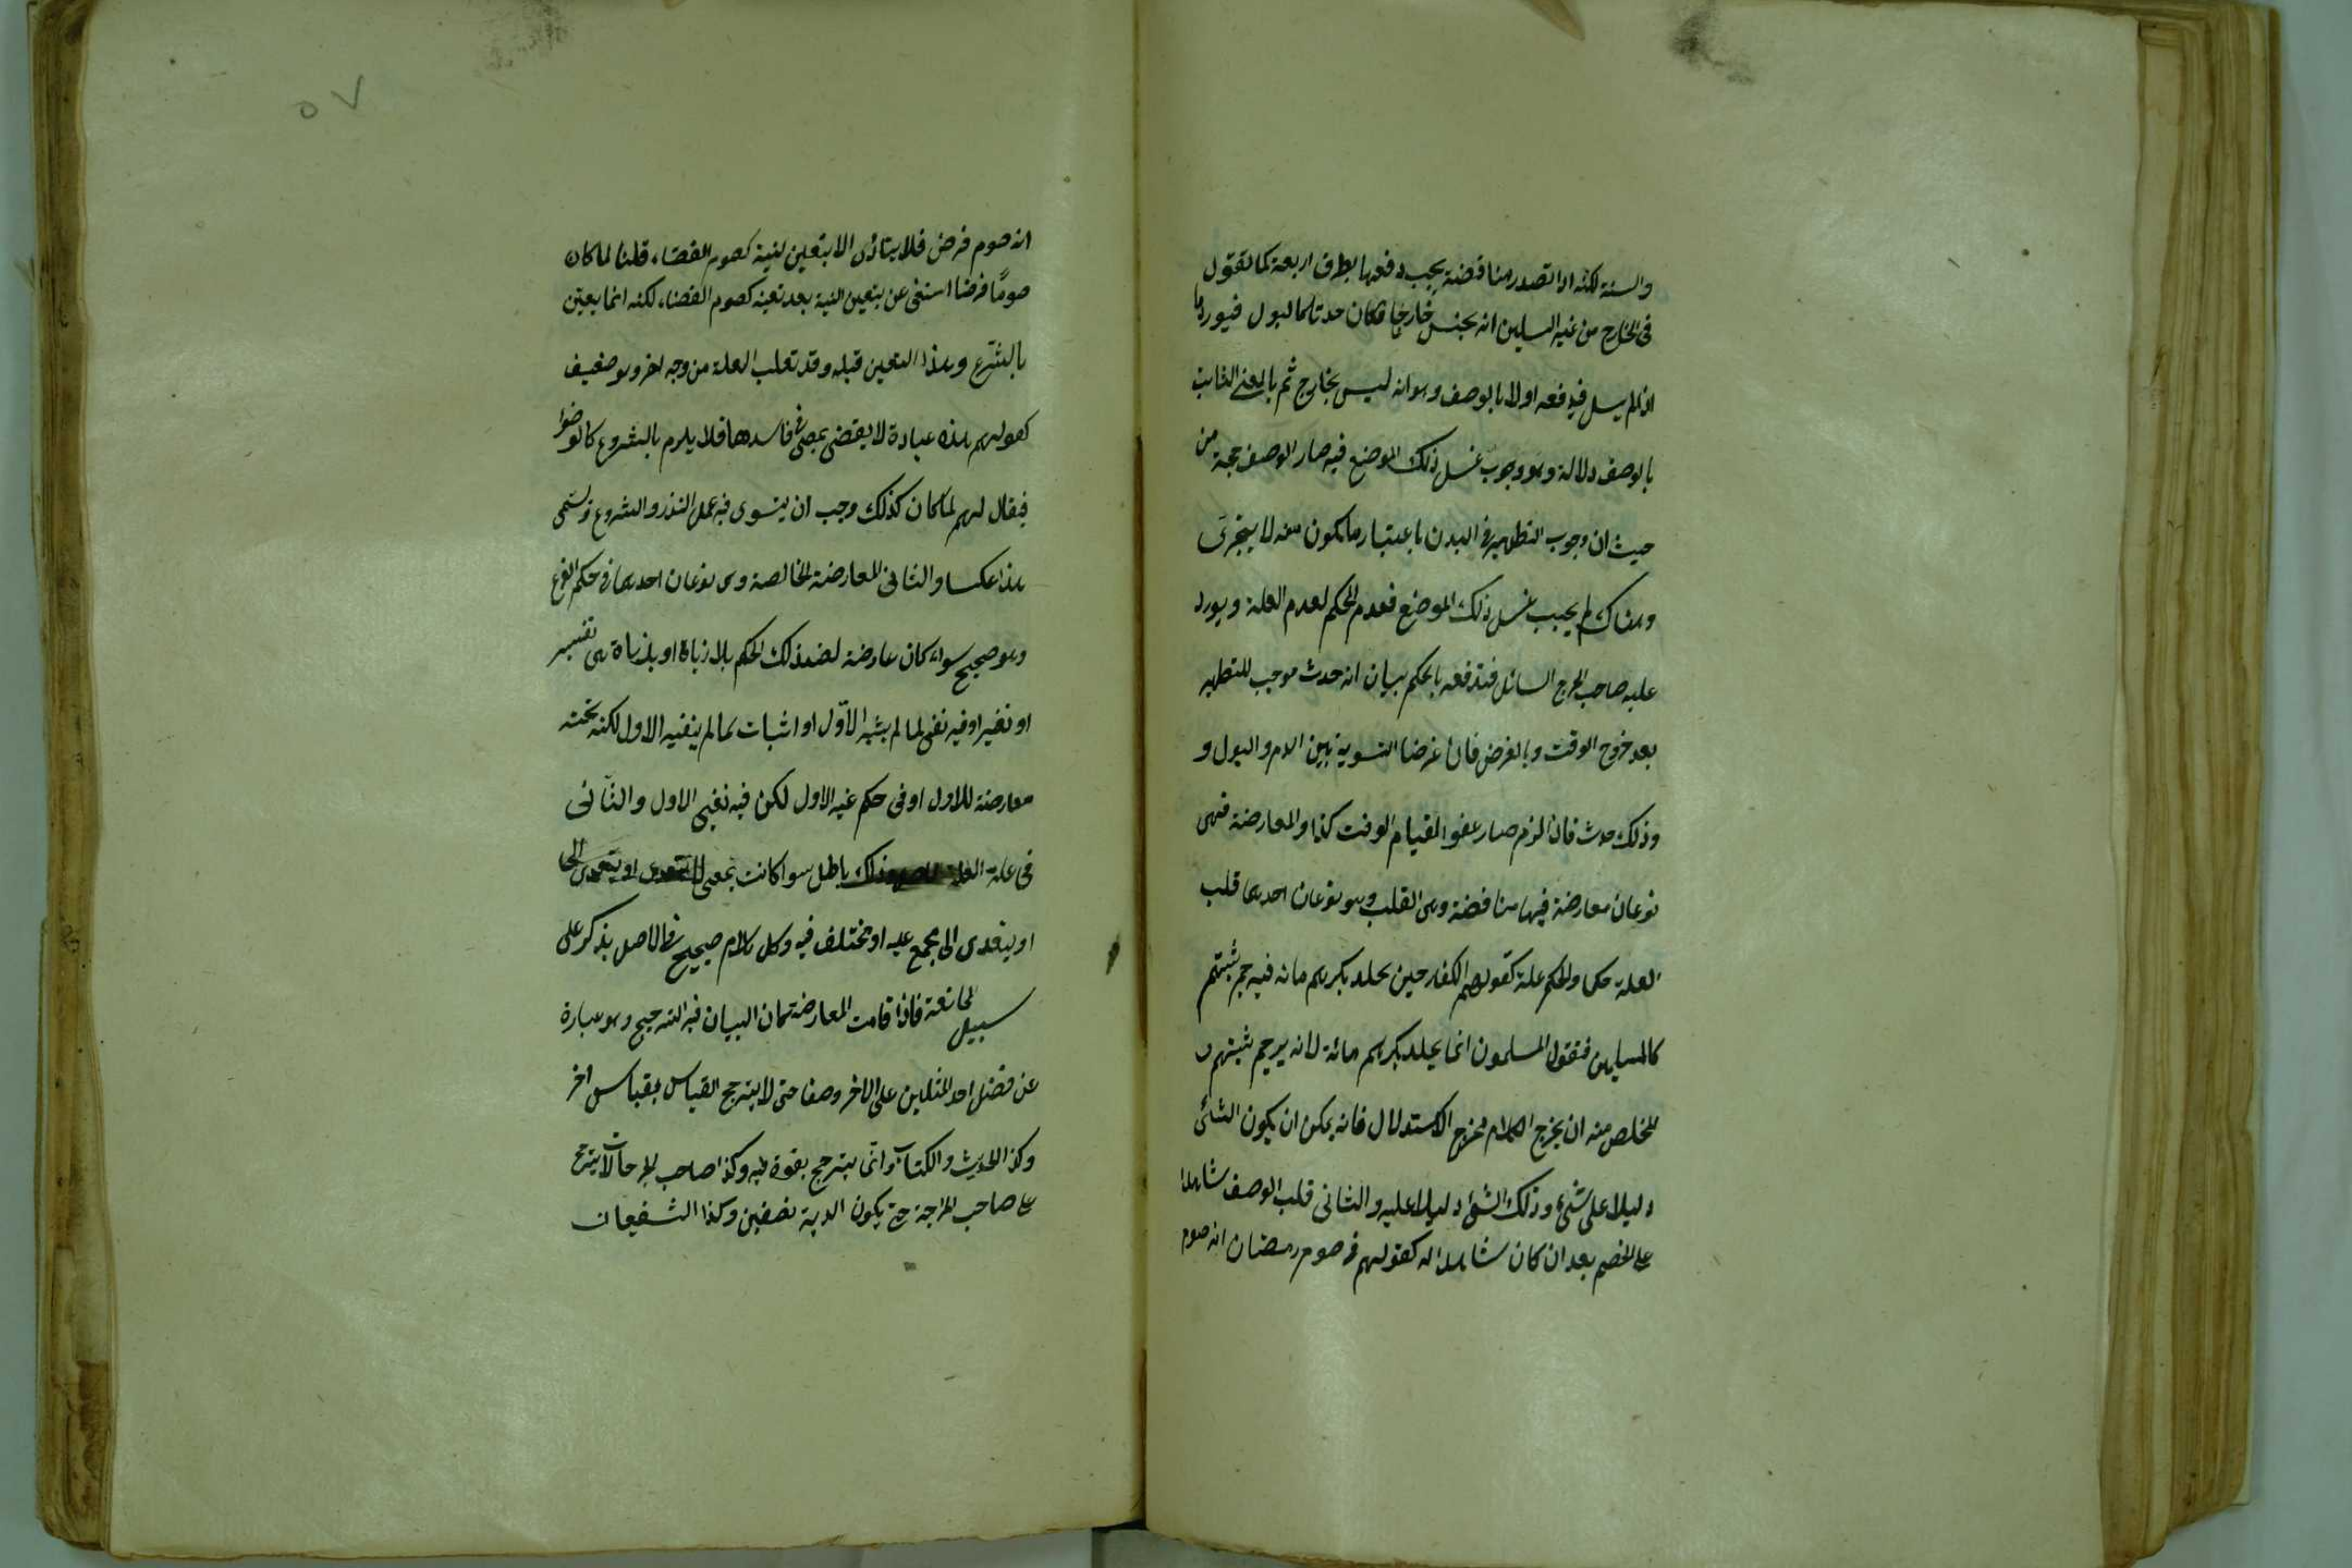 والسنة لكنه اذا تصدر مناقضة يجب دفعها بطرق اربعة كما تقول
فى الخارج من غير السبلين انه نجس خارج فكان حدثا كالبول فيورد ما
اذا لم يسل فيدفعه اولا بالوصف وهو انه ليس بخارج ثم بالمعنى الثابت
بالوصف دلالة وهو وجوب غسل ذلك الموضع فيه صار الوصف حجة من
حيث ان وجوب التطهير فى البدن باعتبار ما يكون منه لا يتجزى
وهناك لم يجب غسل ذلك الموضع فعدم الحكم لعدم العلة ويورد
عليه صاحب الجرح السائل فندفعه بالحكم ببيان انه حدث موجب للتطهير
بعد خروج الوقت وبالغرض فان غرضنا التسوية بين الدم والبول و
وذلك حدث فاذا لزم صار عفوا لقيام الوقت كذا والمعارضة فهى
نوعان معارضة فيها مناقضة وهى القلب وهو نوعان احدهما قلب
العلة حكما والحكم علة كقولهم الكفار جنس يجلد بكرهم مائة فيرجم ثيبهم
كالمسلمين فنقول المسلمون انما يجلد بكرهم مائة لانه يرجم ثيبهم و
المخلص منه ان يخرج الكلام مخرج الاستدلال فانه يمكن ان يكون الشئ
دليلا على شئ وذلك الشئ دليلا عليه والثانى قلب الوصف شاهدا
على الخصم بعد ان كان شاهدا له كقولهم فى صوم رمضان انه صوم
انه صوم فرض فلا يتادى الا بتعين النية كصوم القضاء قلنا لما كان
صوما فرضا استغنى عن تعين النية بعد تعينه كصوم القضاء لكنه انما يعين
بالشرع وهذا التعين قبله وقد تقلب العلة من وجه اخر وهو ضعيف
كقولهم هذه عبادة لا يقضى بمضى فى فاسدها فلا يلزم بالشروع كالوضوء
فيقال لهم لما كان كذلك وجب ان يستوى فيه عمل النذر والشروع وتسمى
هذا عكسا والثانى المعارضة الخالصة وهى نوعان احدهما فى حكم الفرع
وهو صحيح سواء كان عارضه لضد ذلك الحكم بلا زيادة او بزيادة هى تفسير
او تغير او فيه نفى لما لم يثبته الاول او اثبات لما لم ينفيه الاول لكنه تحته
معارضة للاول او فى حكم غير الاول لكن فيه نفى الاول والثانى
فى علة وذلك باطل سواء كانت بمعنى لا يتعدى او يتعدى الى
او يتعدى الى مجمع عليه او مختلف فيه وكل كلام صحيح فى الاصل يذكر على
سبيل الممانعة فاذا قامت المعارضة كان البيان فيه الترجيح وهو عبارة
عن فضل احد المثلين على الاخر وصفا حتى لا يترجح القياس بقياس اخر
وكذا الحديث والكتاب وانما يترجح بقوة فيه وكذا صاحب الجراحات لا يترجح
على صاحب الجراحة حتى يكون الدية نصفين وكذا الشفيعان
٥٧